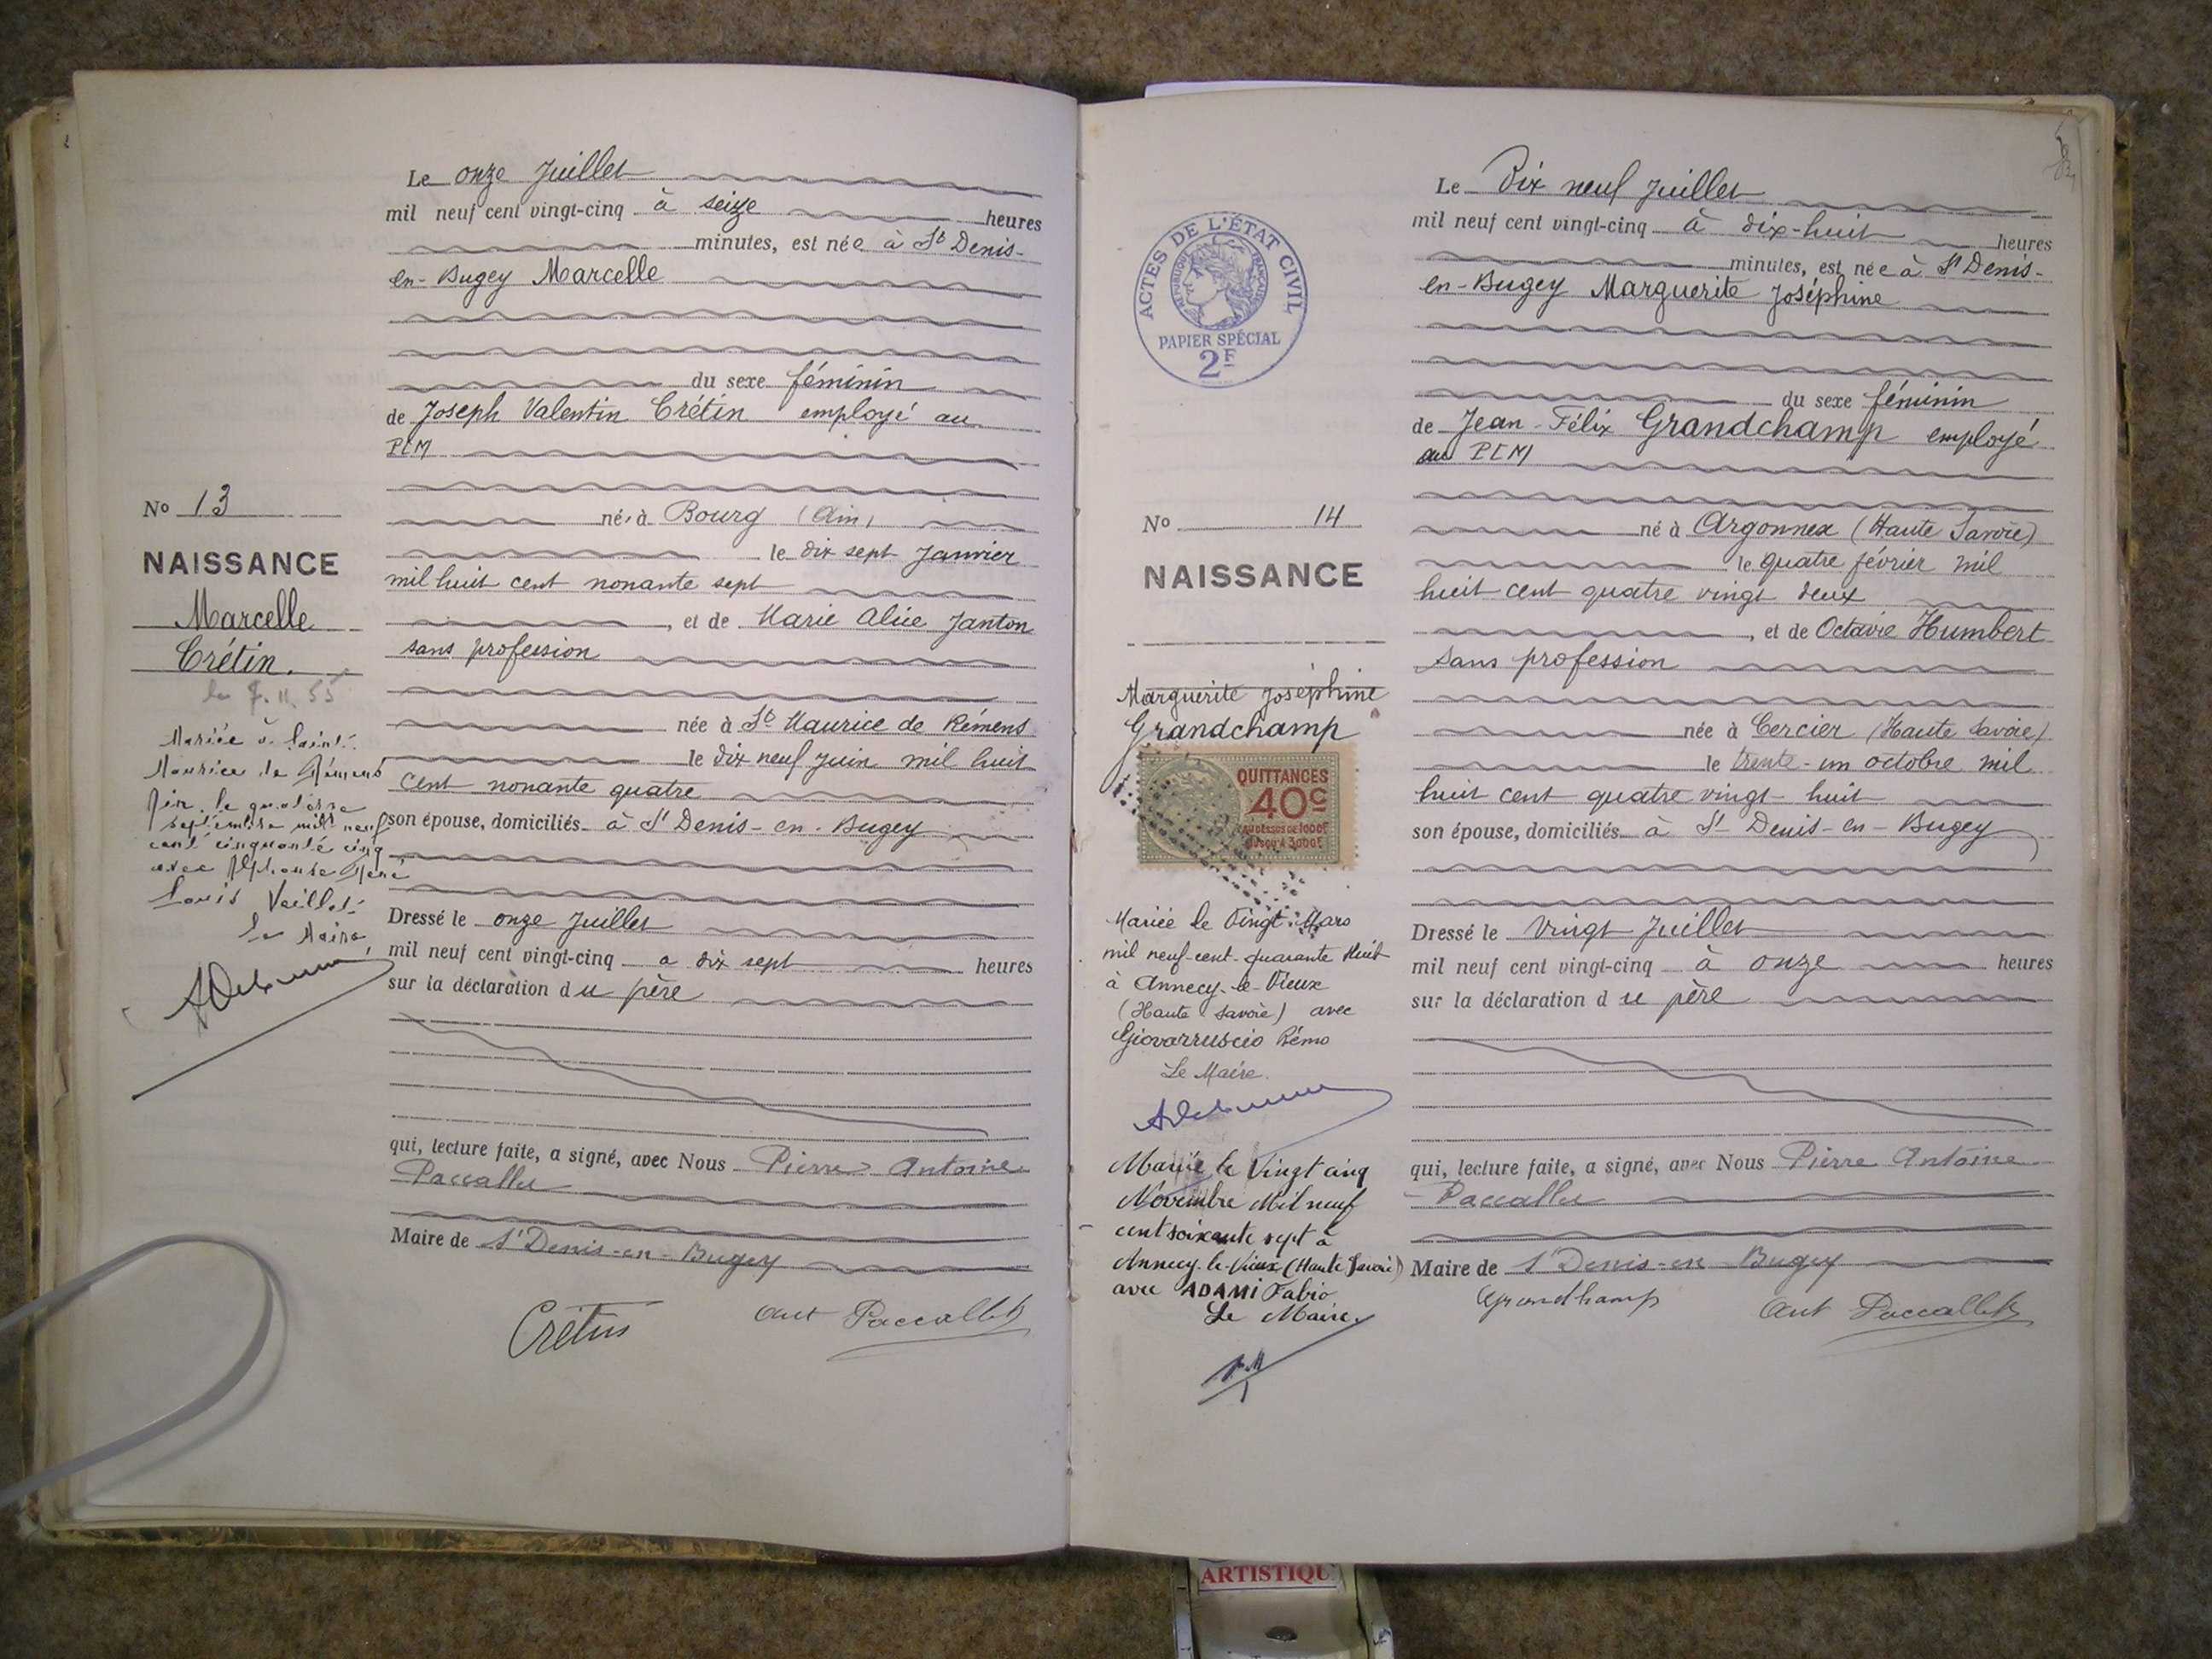 Le onze Juillet
mil neuf cent vingt-cinq à seize heures
minutes, est née à St Denis-
en-Bugey Marcelle
du sexe féminin
de Joseph Valentin Crétin employé au
PLM
né à Bourg (Ain)
le dix sept Janvier
mil huit cent nonante sept
, et de Marie Alice Janton
sans profession
née à St Maurice de Rémens
le dix neuf Juin mil huit
cent nonante quatre
son épouse, domiciliés à St Denis-en-Bugey
Dressé le onze Juillet
mil neuf cent vingt-cinq a dix sept heures
sur la déclaration du père
qui, lecture faite, a signé, avec Nous Pierre Antoine
Paccallet
Maire de St Denis-en-Bugey
Crétin Ant Paccallet
No 13
NAISSANCE
Marcelle
Crétin.
le 7.11.55
Mariée à Saint
Maurice de Rémens
Ain, le quatorze
septembre mil neuf
cent cinquante cinq
avec Alphonse René
Louis Veillet
Le Maire,
ACTES DE L'ÉTAT CIVIL
RÉPUBLIQUE FRANÇAISE
PAPIER SPÉCIAL
2F
No 14
NAISSANCE
Marguerite Joséphine
Grandchamp
QUITTANCES
40c
AU DESSUS DE 1000F
JUSQU'À 3000F
Mariée le Vingt Mars
mil neuf-cent-quarante Huit
à Annecy-le-Vieux
(Haute Savoie) avec
Giovarruscio Rémo
Le Maire.
Mariée le Vingt cinq
Novembre Mil neuf
cent soixante sept à
Annecy-le-Vieux (Haute Savoie)
avec ADAMI Fabio
Le Maire.
Le Dix neuf Juillet
mil neuf cent vingt-cinq à dix-huit heures
minutes, est née à St Denis-
en-Bugey Marguerite Joséphine
du sexe féminin
de Jean-Félix Grandchamp employé
au PLM
né à Argonnex (Haute Savoie)
le quatre février mil
huit cent quatre vingt deux
, et de Octavie Humbert
sans profession
née à Cercier (Haute Savoie)
le trente-un octobre mil
huit cent quatre vingt-huit
son épouse, domiciliés à St-Denis-en-Bugey
Dressé le Vingt Juillet
mil neuf cent vingt-cinq à onze heures
sur la déclaration du père
qui, lecture faite, a signé, avec Nous Pierre Antoine
Paccallet
Maire de St Denis-en-Bugey
Grandchamp Ant Paccallet
ARTISTIQU